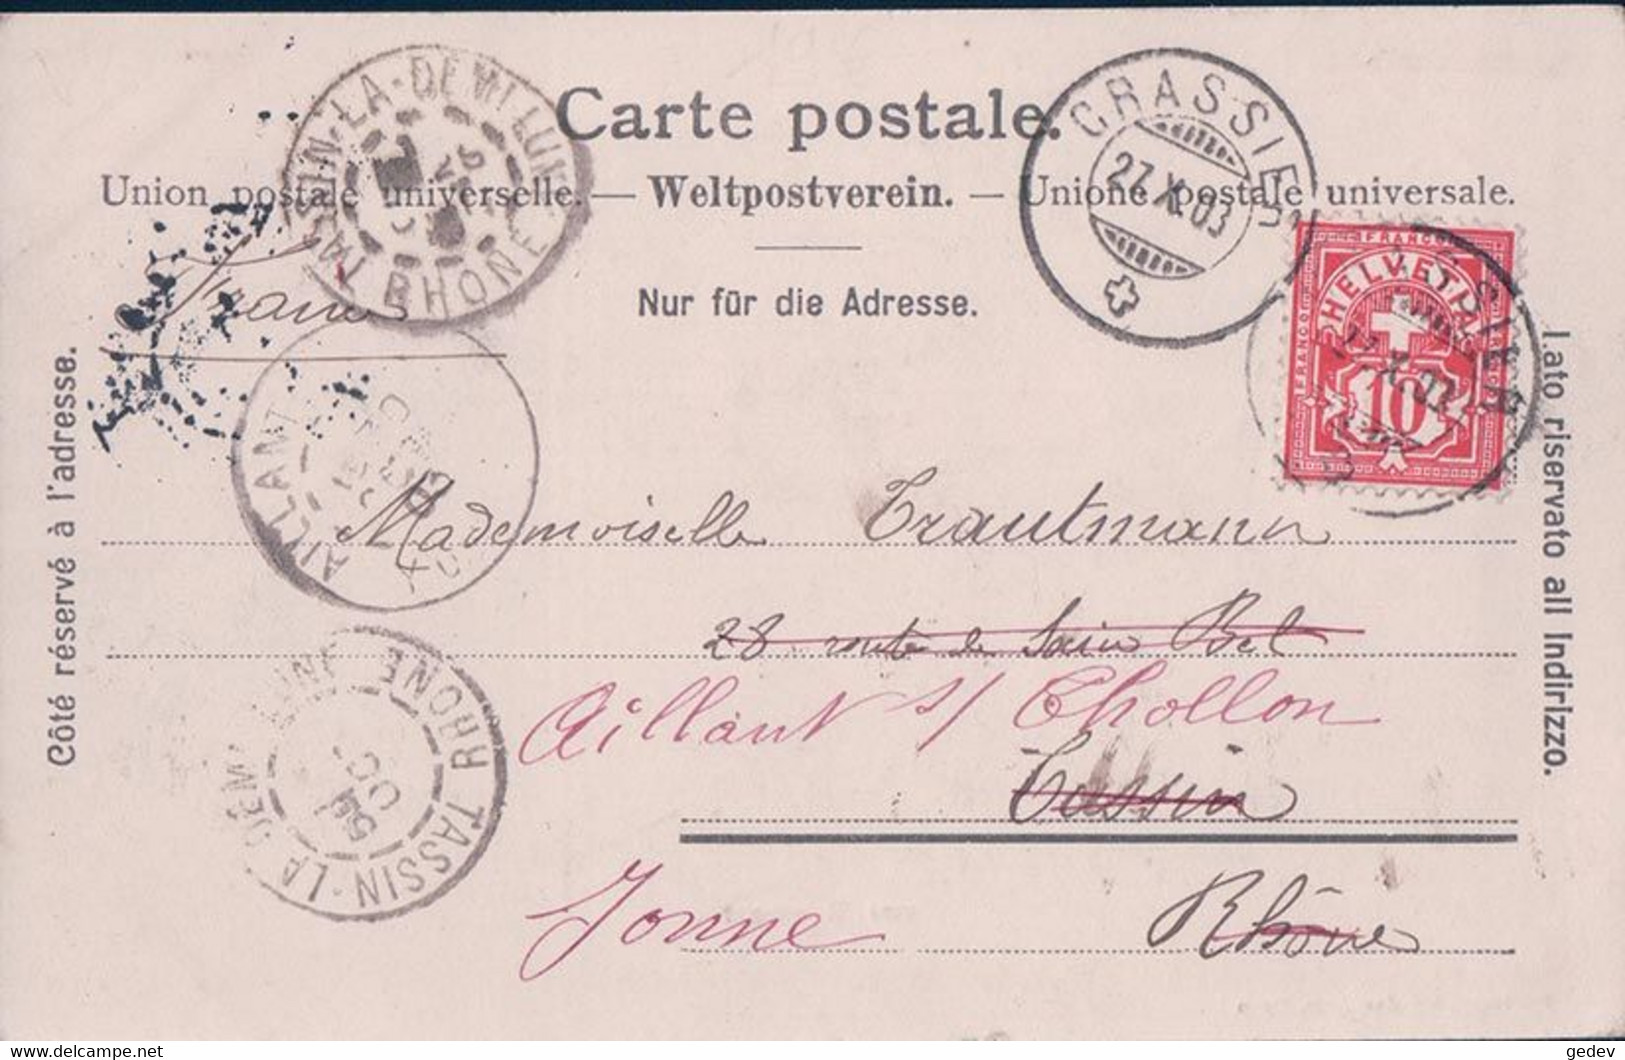 Carte postale.
Union postale universelle. — Weltpostverein. — Unione postale universale.
Nur für die Adresse.
Côté réservé à l'adresse.
Lato riservato all Indirizzo.
TASSIN-LA-DEMI-LUNE
RHONE
CRASSIER
27.X.03
FRANCO
HELVETIA
FRANCO
10
France
Mademoiselle Trautmann
28 route de Sain Bel
Aillant s/ Thollon
Tassin
Yonne
Rhône
TASSIN-LA-DEMI-LUNE
RHONE
delcampe.net
gedev